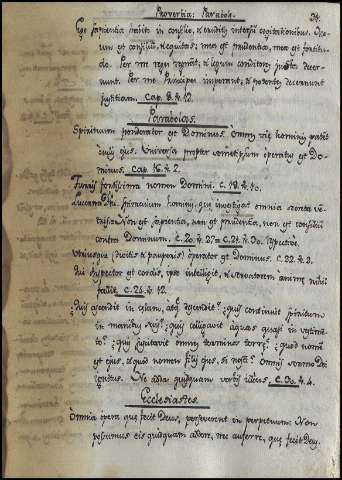 Proverbia: Parabol. 34.
Ego sapientia habito in consilio, & eruditis intersum cogitationibus. Me-
um est consilium, & equitas; mea est prudentia, mea est fortitu-
do. Per me reges regnant, & legum conditores justa decer-
nunt. Per me Principes imperant, & potentes decernunt
justitiam. cap. 8. 12.
Parabolas.
Spirituum ponderator est Dominus. Omnes viæ hominis patent
oculis ejus. Universa propter semetipsum operatus est Do-
minus. cap. 16. 2.
Turris fortissima nomen Domini. c. 18. 10.
Lucerna Dñi spiraculum hominis, quæ investigat omnia secreta ve-
tris. Non est sapientia, non est prudentia, non est consilium
contra Dominum. c. 20. 27 = c. 21. 30.
Utriusque (divitis & pauperis) operator est Dominus. c. 22. 2.
Qui inspector est cordis, ipse intelligit, & servatorem animæ nihil
fallit. c. 24. 12.
Quis ascendit in cælum, atq descendit? quis continuit spiritum
in manibus suis? quis colligavit aquas quasi in vestimen-
to? quis suscitavit omnes terminos terræ? quod nomen
est ejus, & quod nomen filij ejus, si nosti? Omnis sermo Dei
ignitus. Ne addas quidquam verbis illius. c. 30. 4.
Ecclesiastes.
Omnia opera, quæ fecit Deus, perseverent in perpetuum: Non
possumus eis quidquam addere, nec auferre, quæ fecit Deus